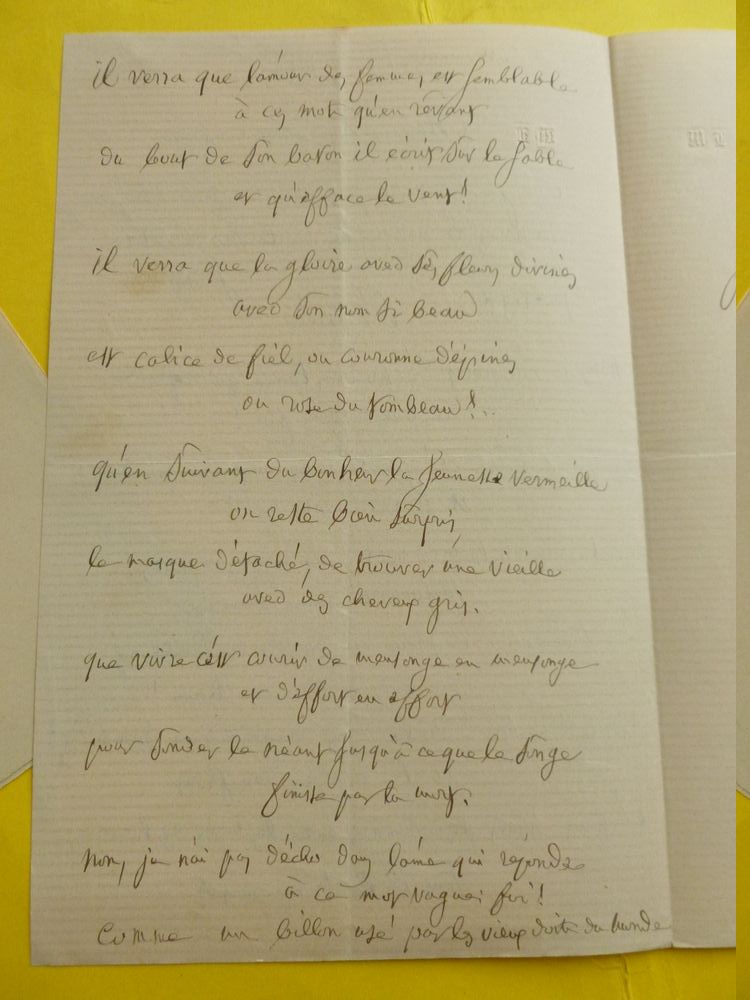 il verra que l'amour des femmes est semblable
à ces mots qu'en rêvant
du bout de son baton il écrit sur le sable
et qu'efface le vent!
il verra que la gloire avec ses fleurs divines
avec son nom si beau
est calice de fiel, ou couronne d'épines
ou rose du tombeau!..
qu'en suivant du bonheur la jeunesse vermeille
on reste bien surpris,
le masque détaché, de trouver une vieille
avec des cheveux gris.
que vivre c'est courir de mensonge en mensonge
et d'effort en effort
pour sonder le néant jusqu'à ce que le songe
finisse par la mort.
non, je n'ai pas d'écho dans l'âme qui réponde
à ce mot vague: foi!
comme un billon usé par les vieux doits du monde